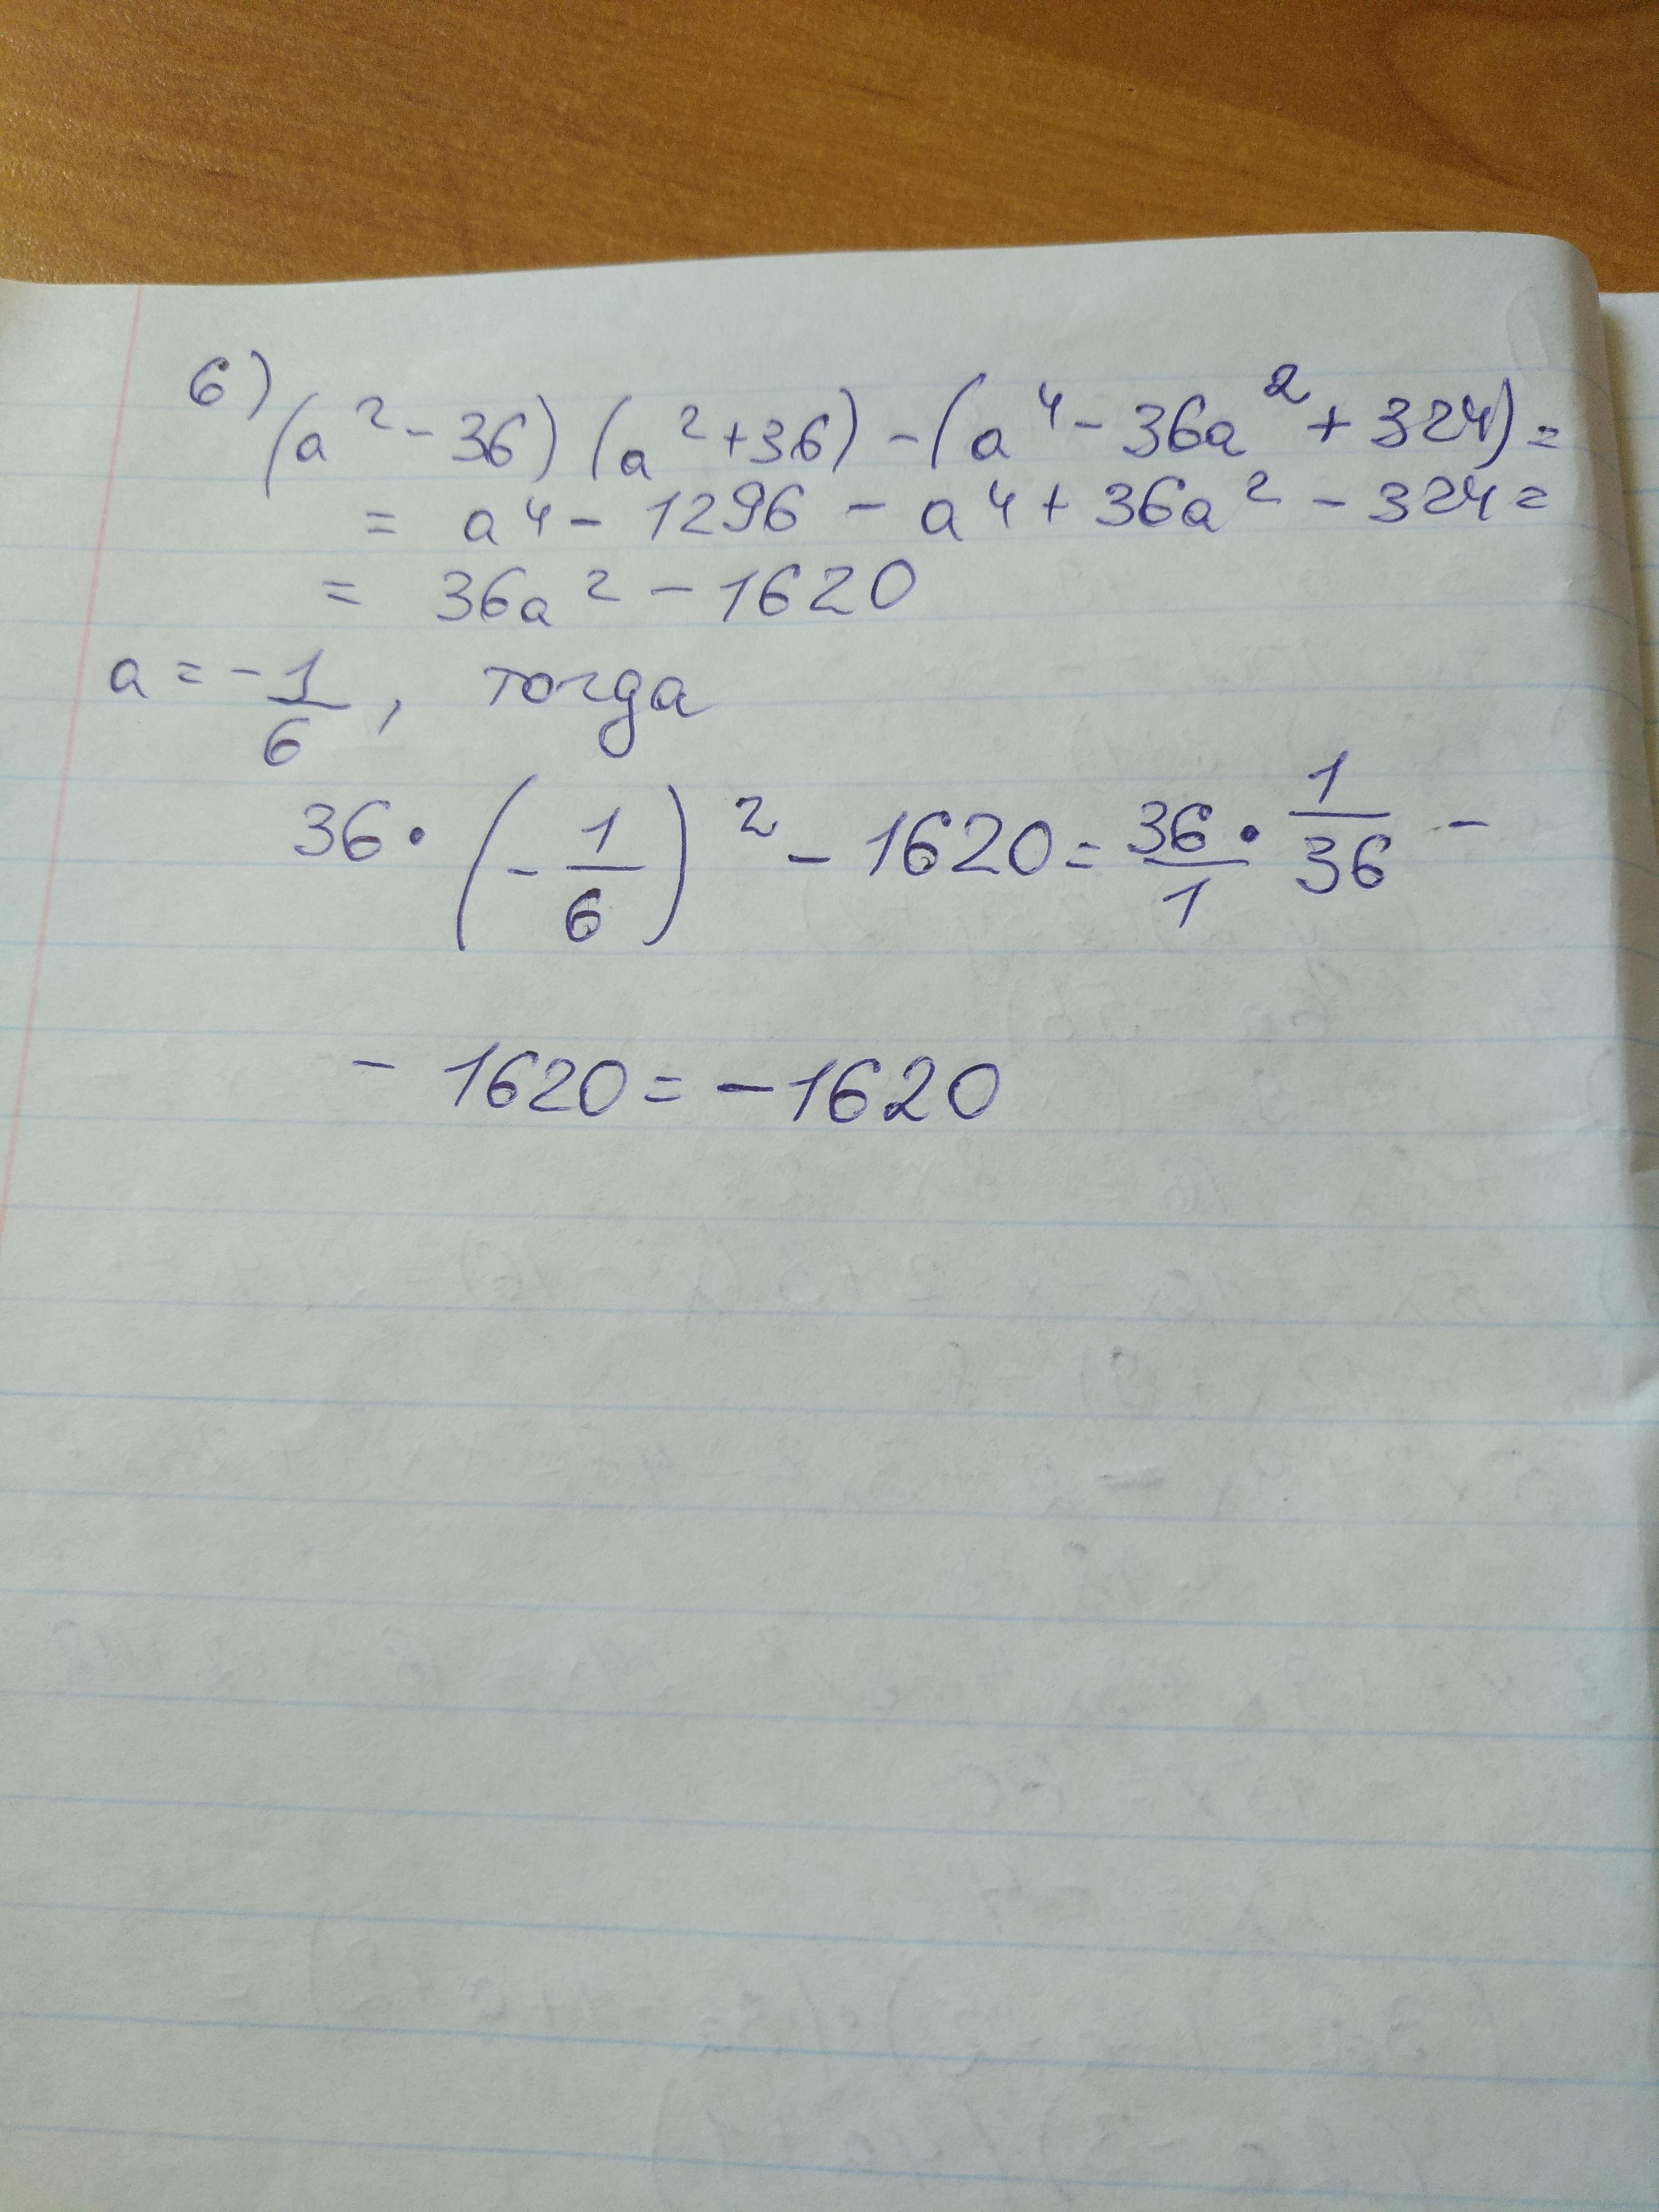 6) (a² - 36) (a² + 36) - (a⁴ - 36a² + 324) =
= a⁴ - 1296 - a⁴ + 36a² - 324 =
= 36a² - 1620
a = - 1/6, тогда
36 · (- 1/6)² - 1620 = 36/1 · 1/36 -
- 1620 = - 1620